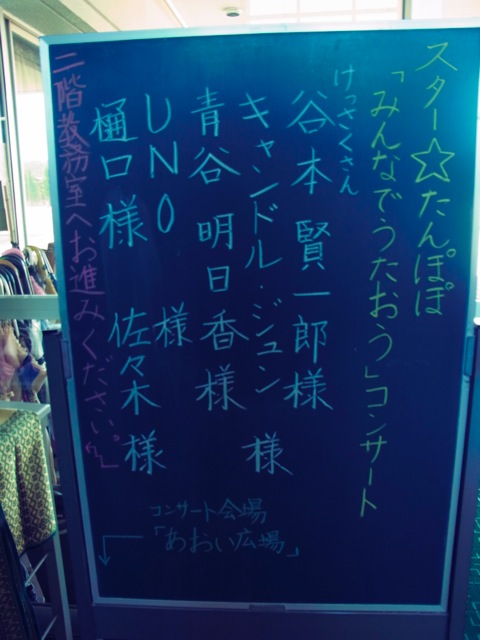 スター☆たんぽぽ
「みんなでうたおう」コンサート
けっさくさん
谷本 賢一郎様
キャンドル・ジュン 様
青谷 明日香様
UNO 様
樋口様 佐々木様
二階教務室へお進みください。
コンサート会場
「あおい広場」